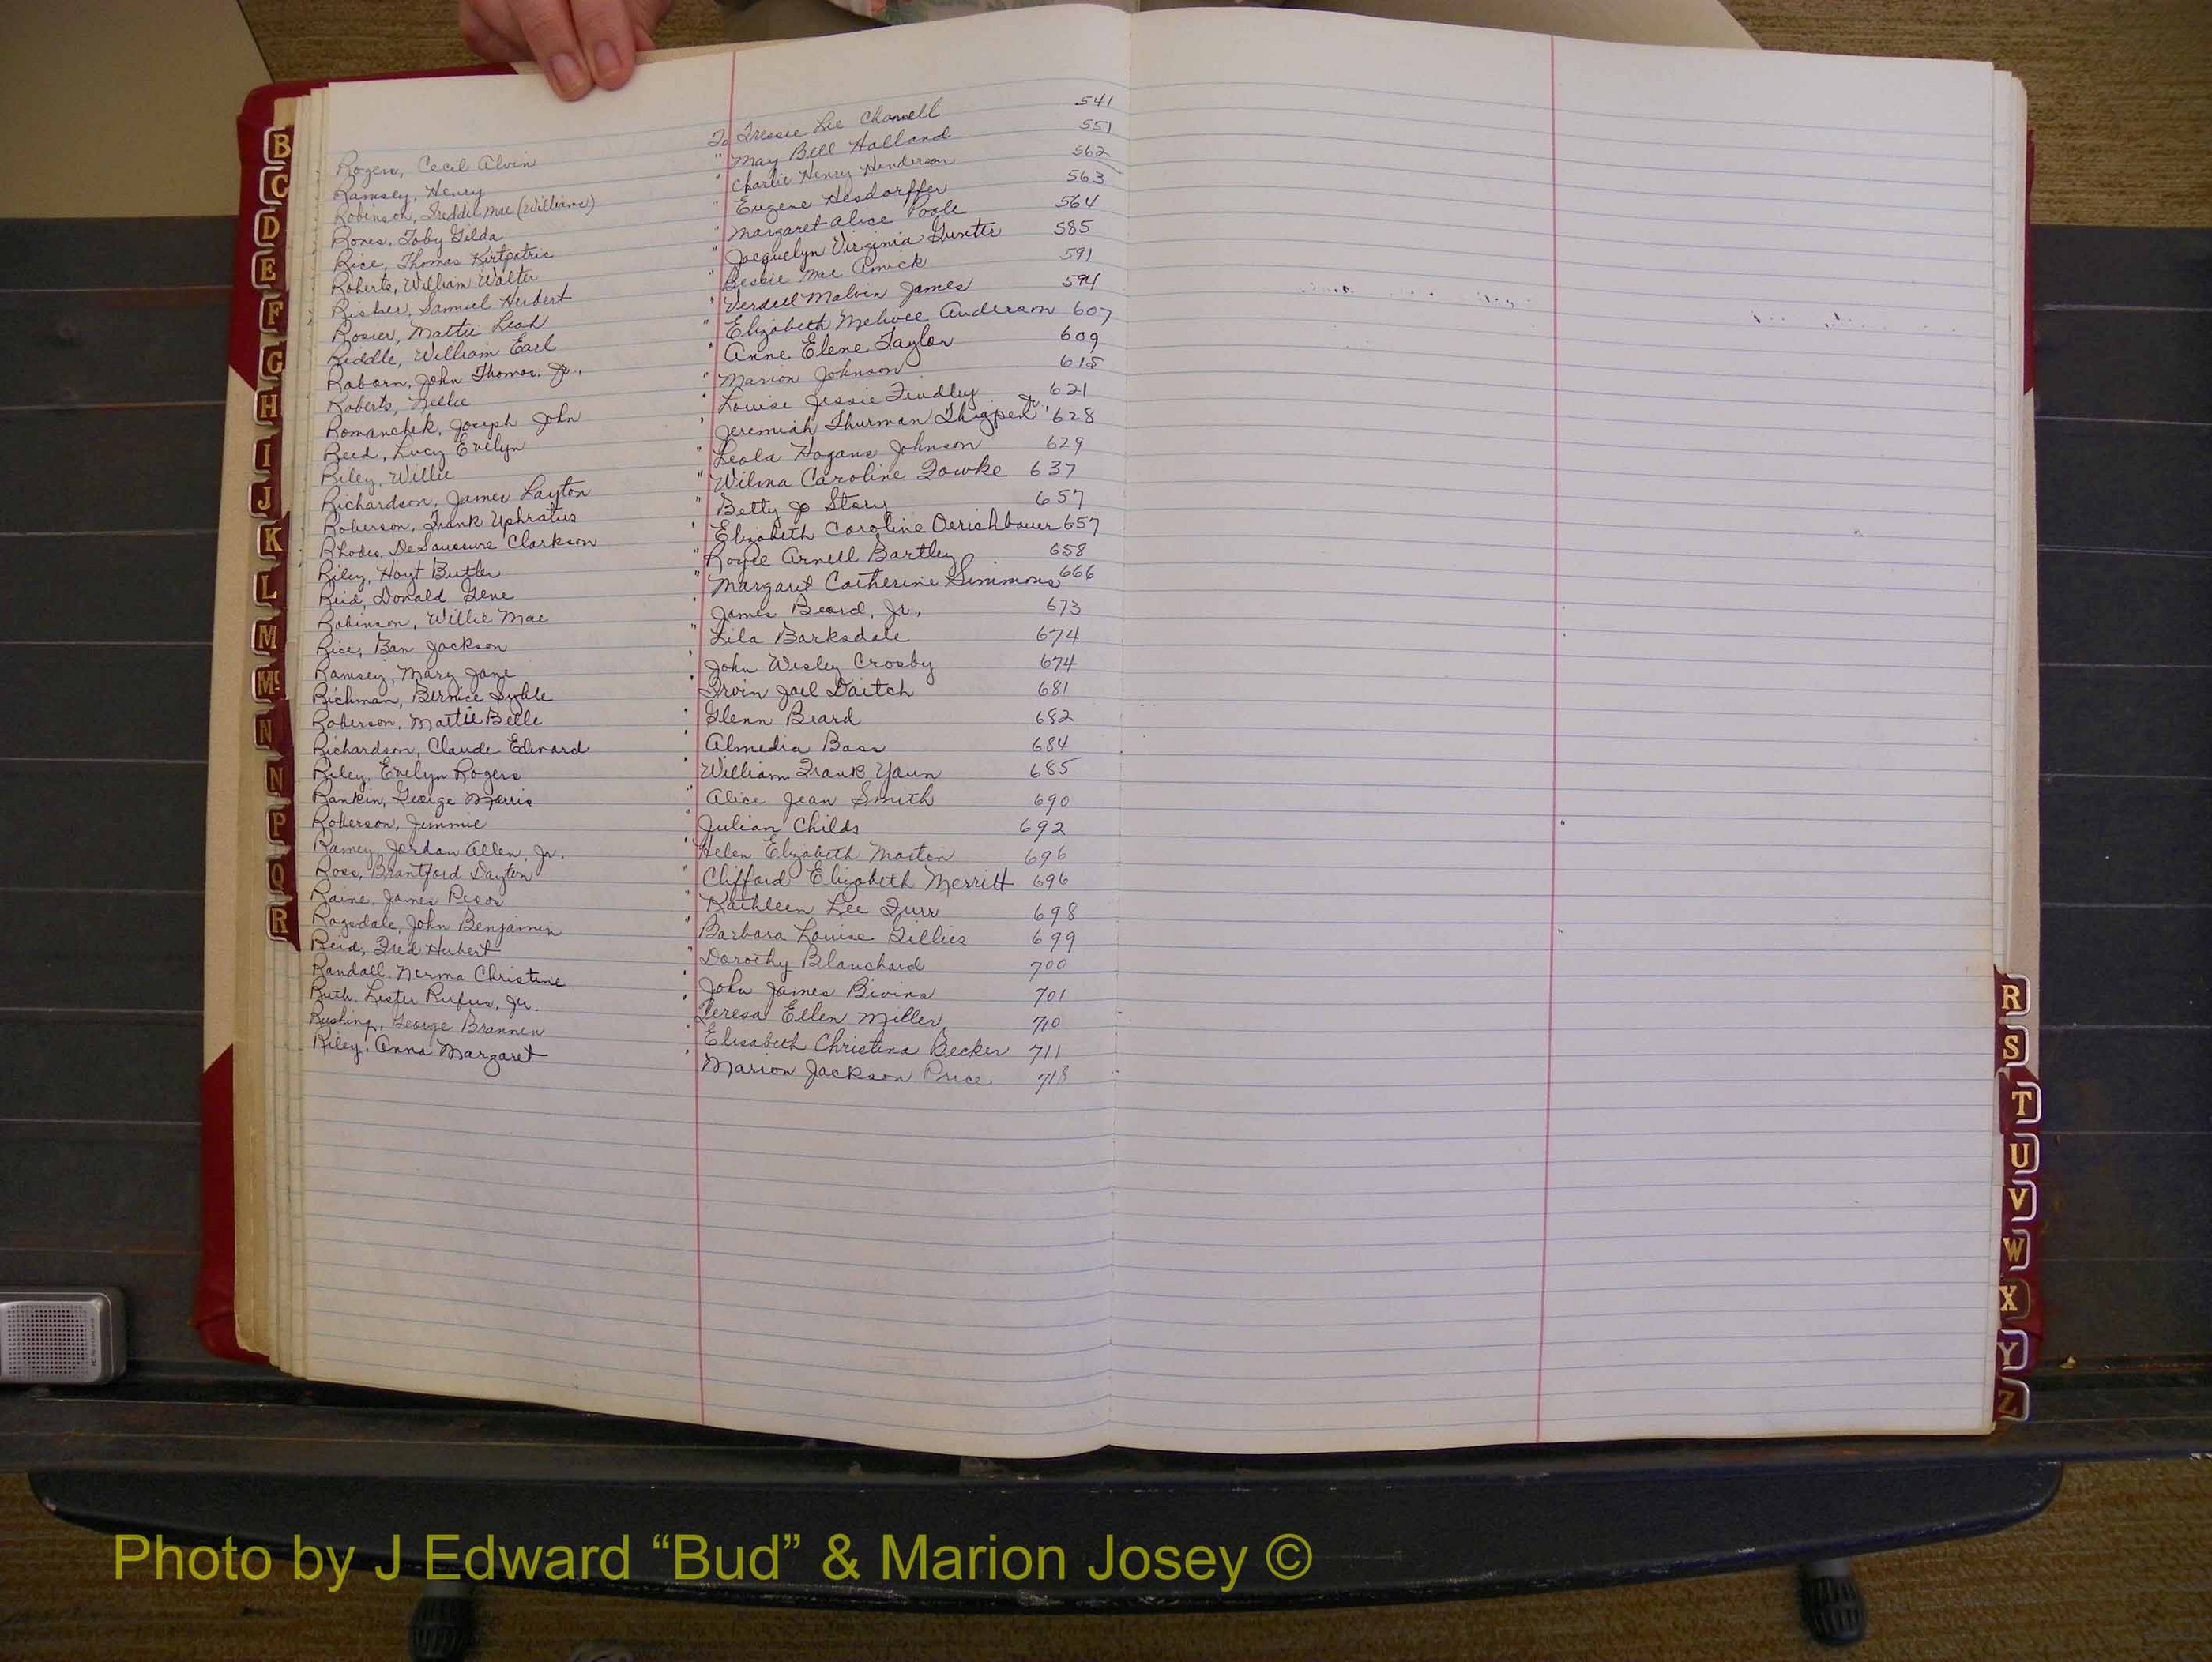 Rogers, Cecil Alvin To Tressie Lee Channell 541
Ramsey, Henry " May Bell Holland 551
Robinson, Freddie Mae (Williams) " Charlie Henry Henderson 562
Rones, Toby Gilda " Eugene Hesdorffer 563
Rice, Thomas Kirtpatric " Margaret Alice Poole 564
Roberts, William Walter " Jacquelyn Virginia Gunter 585
Risher, Samuel Herbert " Bessie Mae Amick 591
Rosier, Mattie Leah " Verdell Malvin James 594
Riddle, William Earl " Elizabeth Melvee Anderson 607
Raborn, John Thomas, Jr. " Anne Elene Taylor 609
Roberts, Nellie " Marion Johnson 615
Romanchek, Joseph John " Louise Jessie Findley 621
Reed, Lucy Evelyn " Jeremiah Thurman Thigpen Jr. 628
Riley, Willie " Leola Hogans Johnson 629
Richardson, James Layton " Wilma Caroline Gowke 637
Roberson, Frank Uphratus " Betty Jo Story 657
Rhodes, DeSaussure Clarkson " Elizabeth Caroline Oerichbauer 657
Riley, Hoyt Butler " Royce Arnell Bartley 658
Reid, Donald Gene " Margaret Catherine Simmons 666
Robinson, Willie Mae " James Beard, Jr., 673
Rice, Ban Jackson " Lila Barksdale 674
Ramsey, Mary Jane " John Wesley Crosby 674
Richman, Bernice Syble " Irvin Joel Daitch 681
Roberson, Mattie Belle " Glenn Beard 682
Richardson, Claude Edward " Almedia Bass 684
Riley, Evelyn Rogers " William Frank Yaun 685
Rankin, George Morris " Alice Jean Smith 690
Roberson, Jimmie " Julian Childs 692
Ramey, Jordan Allen, Jr. " Helen Elizabeth Martin 696
Ross, Brantford Dayton " Clifford Elizabeth Merritt 696
Raine, James Peros " Kathleen Lee Furr 698
Ragsdale, John Benjamin " Barbara Louise Gillies 699
Reid, Fred Hubert " Dorothy Blanchard 700
Randall, Norma Christine " John James Bivins 701
Ruth, Lester Rufus, Jr. " Teresa Ellen Miller 710
Rushing, George Brannen " Elisabeth Christina Becker 711
Riley, Anna Margaret " Marion Jackson Price 718
B
C
D
E
F
G
H
I
J
K
L
M
Mc
N
N
P
Q
R
R
S
T
U
V
W
X
Y
Z
Photo by J Edward “Bud” & Marion Josey ©